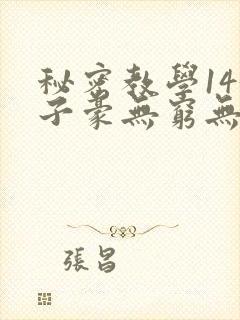 秘密教學14
子豪無窮無
張昌